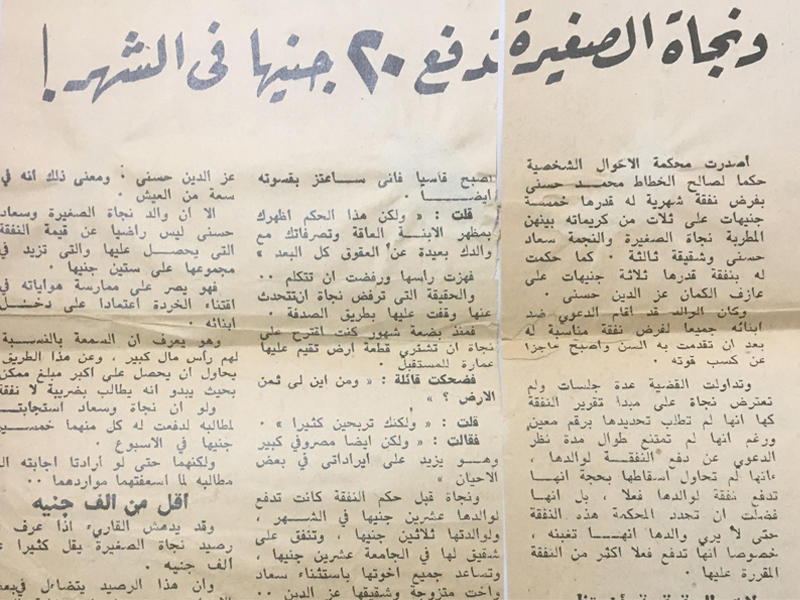 ونجاة الصغيرة تدفع ٢٠ جنيها فى الشهر !
أصدرت محكمة الاحوال الشخصية
حكما لصالح الخطاط محمد حسنى
بفرض نفقة شهرية له قدرها خمسة
جنيهات على ثلاث من كريماته بينهن
المطربة نجاة الصغيرة والنجمة سعاد
حسنى وشقيقة ثالثة . كما حكمت
له بنفقة قدرها ثلاثة جنيهات على
عازف الكمان عز الدين حسنى .
وكان الوالد قد اقام الدعوى ضد
ابنائه جميعا لفرض نفقة مناسبة له
بعد ان تقدمت به السن واصبح عاجزا
عن كسب قوته .
وتداولت القضية عدة جلسات ولم
تعترض نجاة على مبدأ تقرير النفقة
كها انها لم تطلب تحديدها برقم معين
ورغم انها لم تمتنع طوال مدة نظر
الدعوى عن دفع النفقة لوالدها ،
فانها لم تحاول اسقاطها بحجة انها
تدفع نفقة لوالدها فعلا ، بل انها
فضلت ان تحدد المحكمة هذه النفقة
حتى لا يرى والدها انها تغبنه ،
خصوصا انها تدفع فعلا اكثر من النفقة
المقررة عليها .
اصبح قاسيا فانى ساعتز بقسوته
ايضا .
قلت : « ولكن هذا الحكم اظهرك
بمظهر الابنة العاقة وتصرفاتك مع
والدك بعيدة عن العقوق كل البعد »
فهزت رأسها ورفضت ان تتكلم ..
والحقيقة التى ترفض نجاة ان تتحدث
عنها وقفت عليها بطريق الصدفة .
فمنذ بضعة شهور كنت اقترح على
نجاة ان تشترى قطعة ارض تقيم عليها
عمارة للمستقبل .
فضحكت قائلة : « ومن اين لى ثمن
الارض ؟ »
قلت : « ولكنك تربحين كثيرا » .
فقالت : « ولكن ايضا مصروفى كبير
وهو يزيد على ايراداتى فى بعض
الاحيان »
ونجاة قبل حكم النفقة كانت تدفع
لوالدها عشرين جنيها فى الشهر ،
ولوالدتها ثلاثين جنيها ، وتنفق على
شقيق لها فى الجامعة عشرين جنيها ،
وتساعد جميع اخوتها باستثناء سعاد
واخت متزوجة وشقيقها عز الدين ..
عز الدين حسنى : ومعنى ذلك انه فى
سعة من العيش .
الا ان والد نجاة الصغيرة وسعاد
حسنى ليس راضيا عن قيمة النفقة
التى يحصل عليها والتى تزيد فى
مجموعها على ستين جنيها .
فهو يصر على ممارسة هواياته فى
اقتناء الخردة اعتمادا على دخل
ابنائه .
وهو يعرف ان السمعة بالنسبة
لهم رأس مال كبير ، وعن هذا الطريق
يحاول ان يحصل على اكبر مبلغ ممكن
بحيث يبدو انه يطالب بضريبة لا نفقة
ولو ان نجاة وسعاد استجابتا
لمطالبه لدفعت له كل منهما خمسين
جنيها فى الاسبوع .
ولكنهما حتى لو أرادتا اجابته
مطالبه لما اسعفتهما مواردهما ..
اقل من الف جنيه
وقد يدهش القارىء اذا عرف
رصيد نجاة الصغيرة يقل كثيرا
الف جنيه .
وان هذا الرصيد يتضاءل